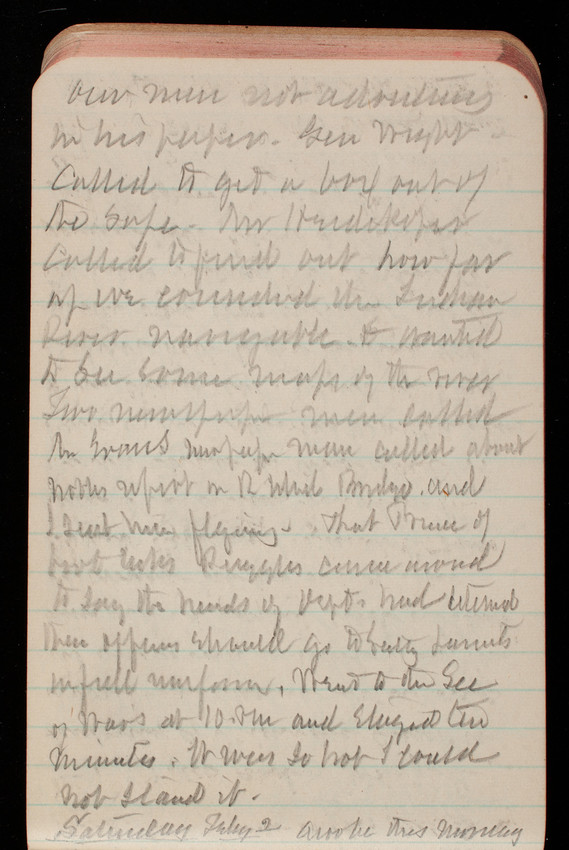 our men not advertising
in his paper. Gen Wright
Called to get a box out of
the Safe. Mr Heidekoper
Called to find out how far
up we considered the Indian
River navigable & wanted
to See Some maps of the river
Two newspaper men called
Mr Evans newspaper man called about
nobles report on R Island Bridge. and
I Sent him flying. That Prince of
boot licks Ruggles came around
to Say the heads of Depts had
their officers Should go to
in full uniform. Went to the Sec
of Wars at 10.PM and Stayed ten
minutes. It was So hot I could
not Stand it.
Saturday Feby 2 awoke this Morning